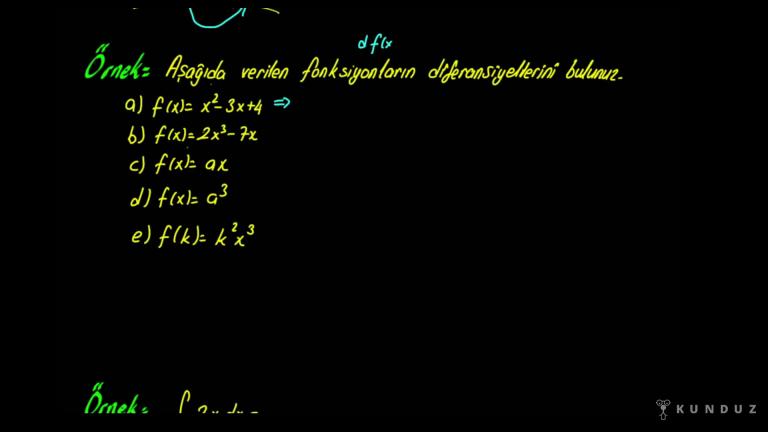 d f(x
Örnek= Aşağıda verilen fonksiyonların diferansiyellerini bulunuz.
a) f(x)= x²-3x+4 ⇒
b) f(x)=2x³-7x
c) f(x)= ax
d) f(x)= a³
e) f(k)= k²x³
Örnek=
KUNDUZ